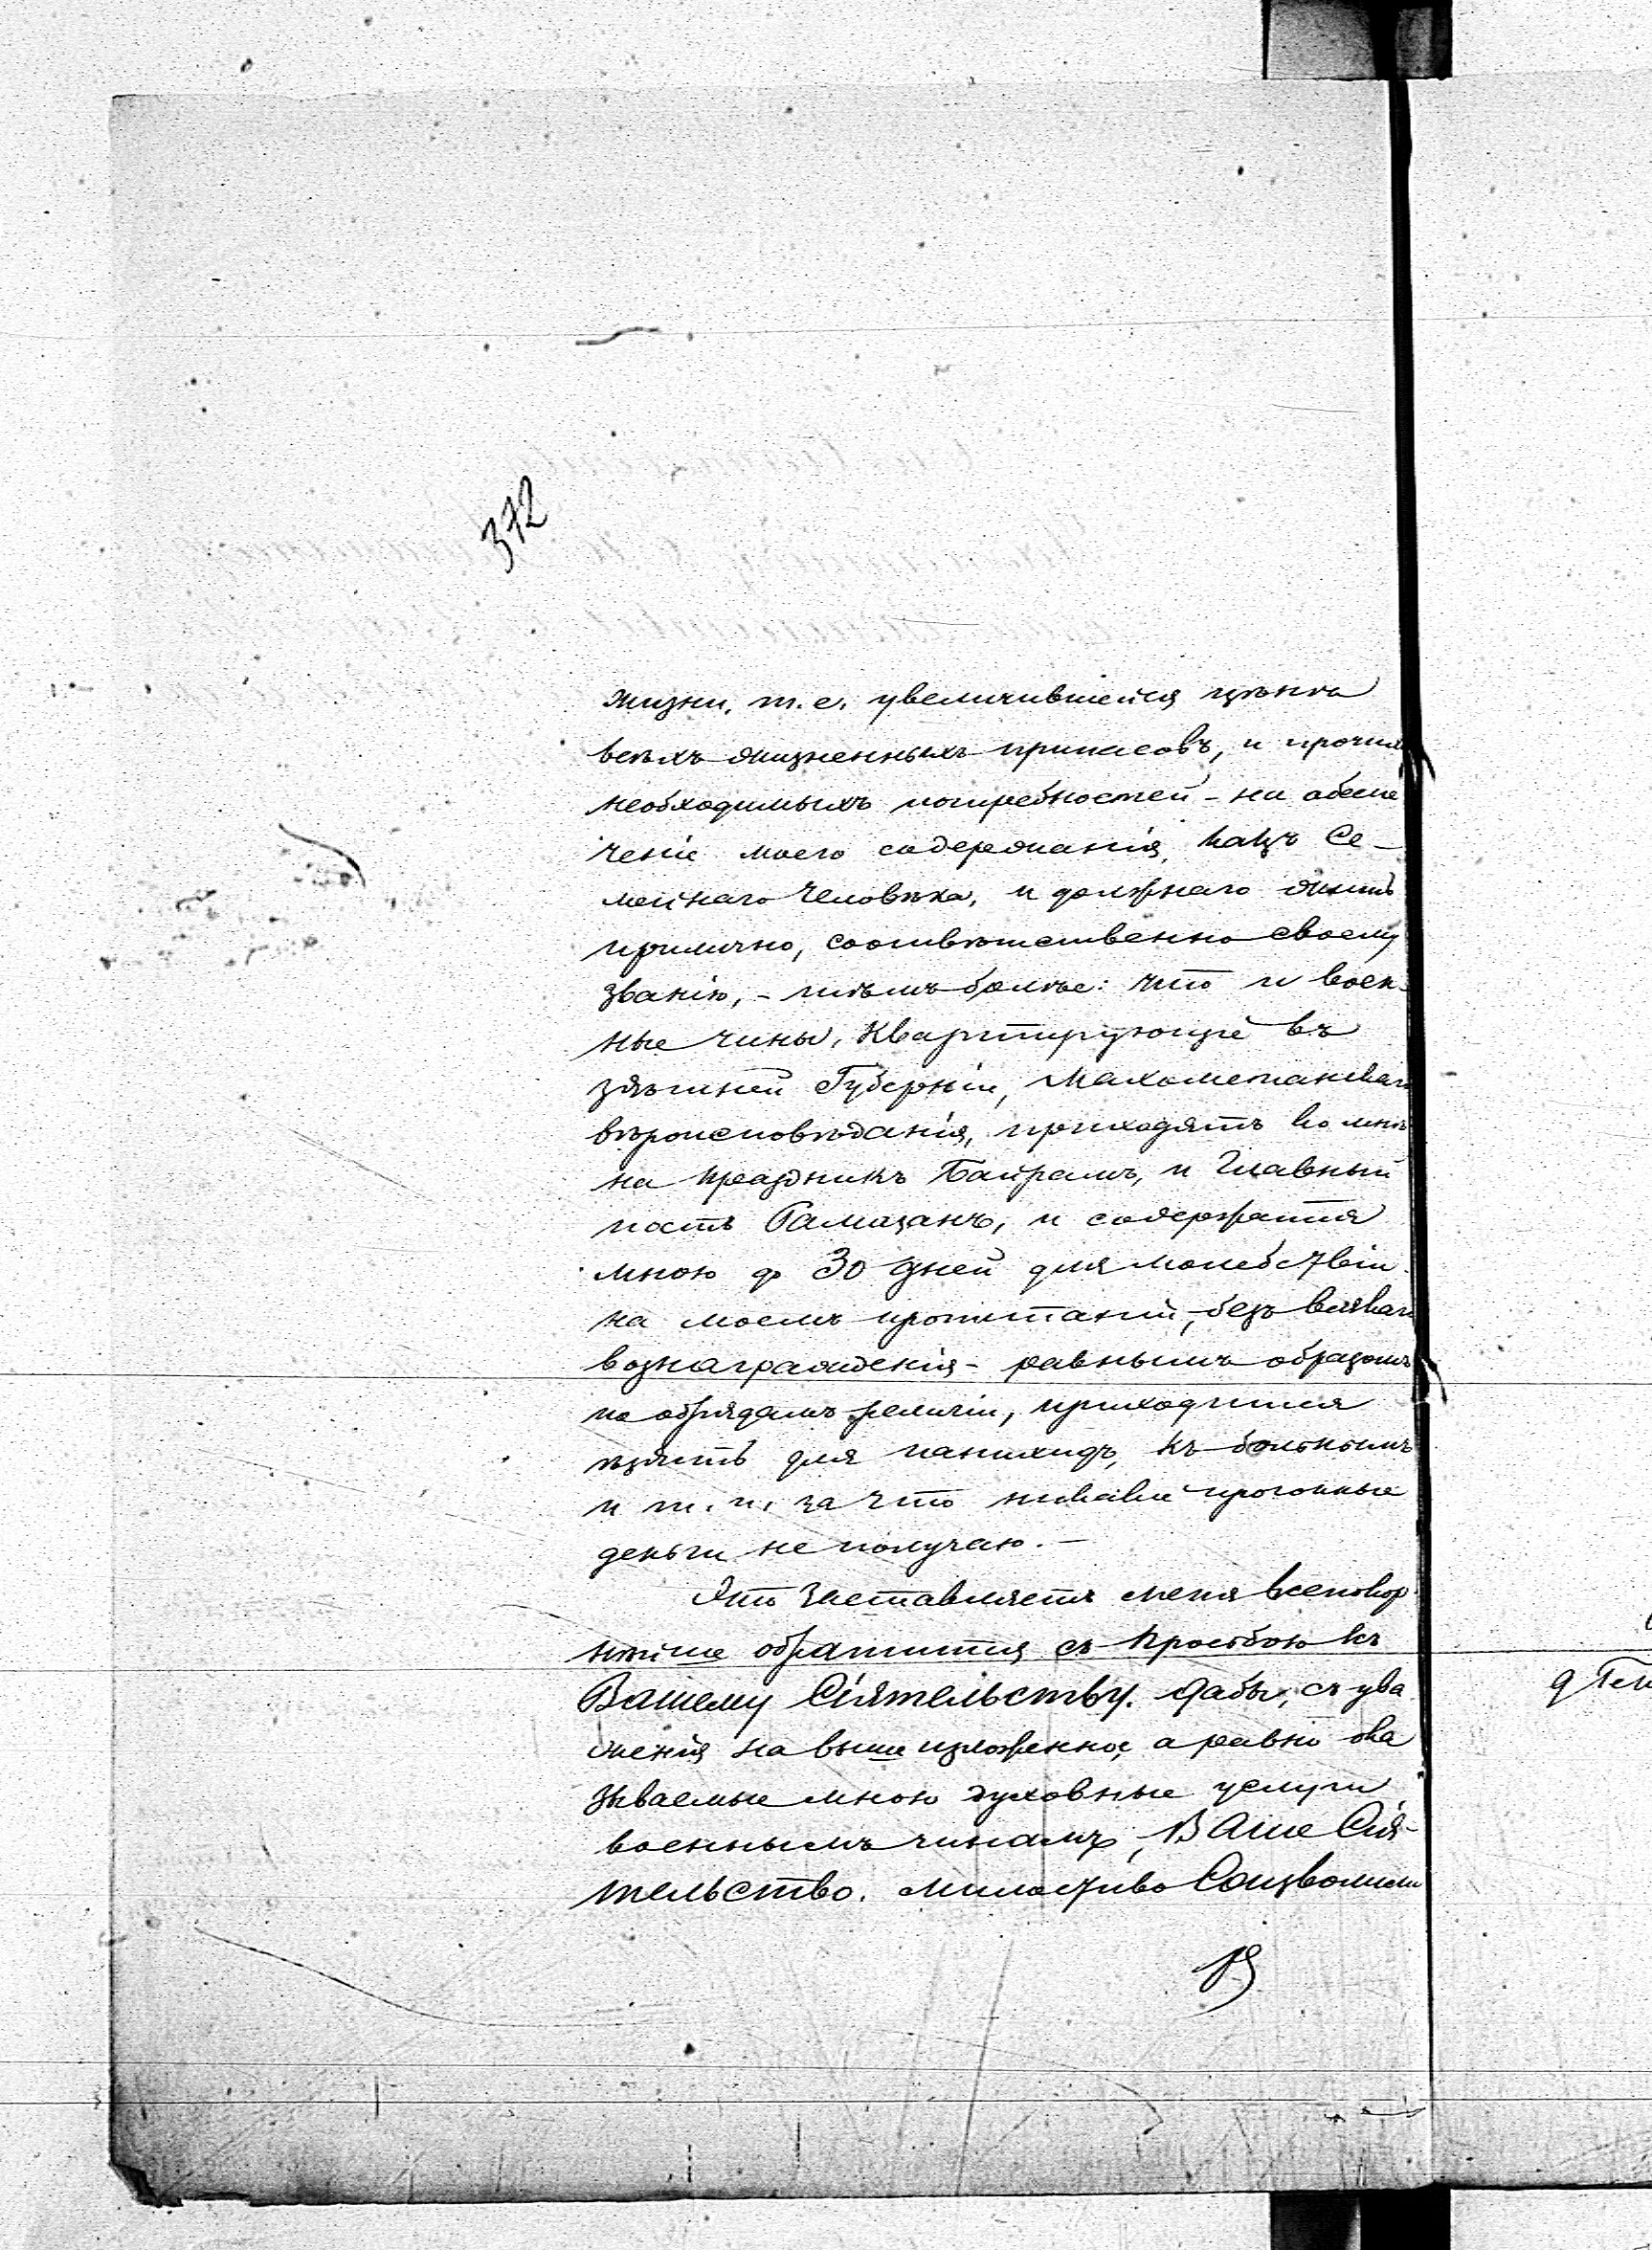 372
жизни, т. е. увеличившейся цѣнка
всѣхъ жизненныхъ припасовъ, и прочихъ
необходимыхъ потребностей - на обеспе
ченіе моего содержанія, какъ Се-
мейнаго человѣка, и должнаго жить
прилично, соотвѣтственно своему
званію, - тѣмъ болѣе: что и воен-
ные чины, квартирующіе въ
здѣшней Губерніи, Махометанскаго
вѣроисповѣданія, приходятъ ко мнѣ
на праздникъ Байрамъ, и Главный
постъ Рамазанъ, и содержатся
мною до 30 дней для молебствія
на моемъ пропитаніи, - безъ всякаго
вознагражденія - равнымъ образомъ
по обрядамъ религіи, приходится
ѣздить для панихидъ, къ больнымъ
и т. п. за что никакіе прогонные
деньги не получаю. -
Это заставляетъ меня всепокор
нѣйше обратится съ просьбою къ
Вашему Сіятельству. дабы, съ ува
женія на выше изложенное, а равно ока
зываемые мною духовные услуги
военнымъ чинамъ, Ваше Сія-
тельство. милостиво Соизволили